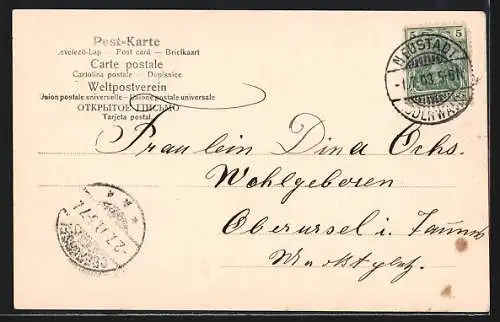 Post-Karte
Levelező-Lap — Post card — Briefkaart
Carte postale
Cartolina postale — Dopisnice
Weltpostverein
Union postale universelle — Unione postale universale
ОТКРЫТОЕ ПИСЬМО
Tarjeta postal
5 5
NEUSTADT
Fraulein Dina Ochs.
Wohlgeboren
Oberursel i. Taunus
Marktplatz.
OBERURSEL